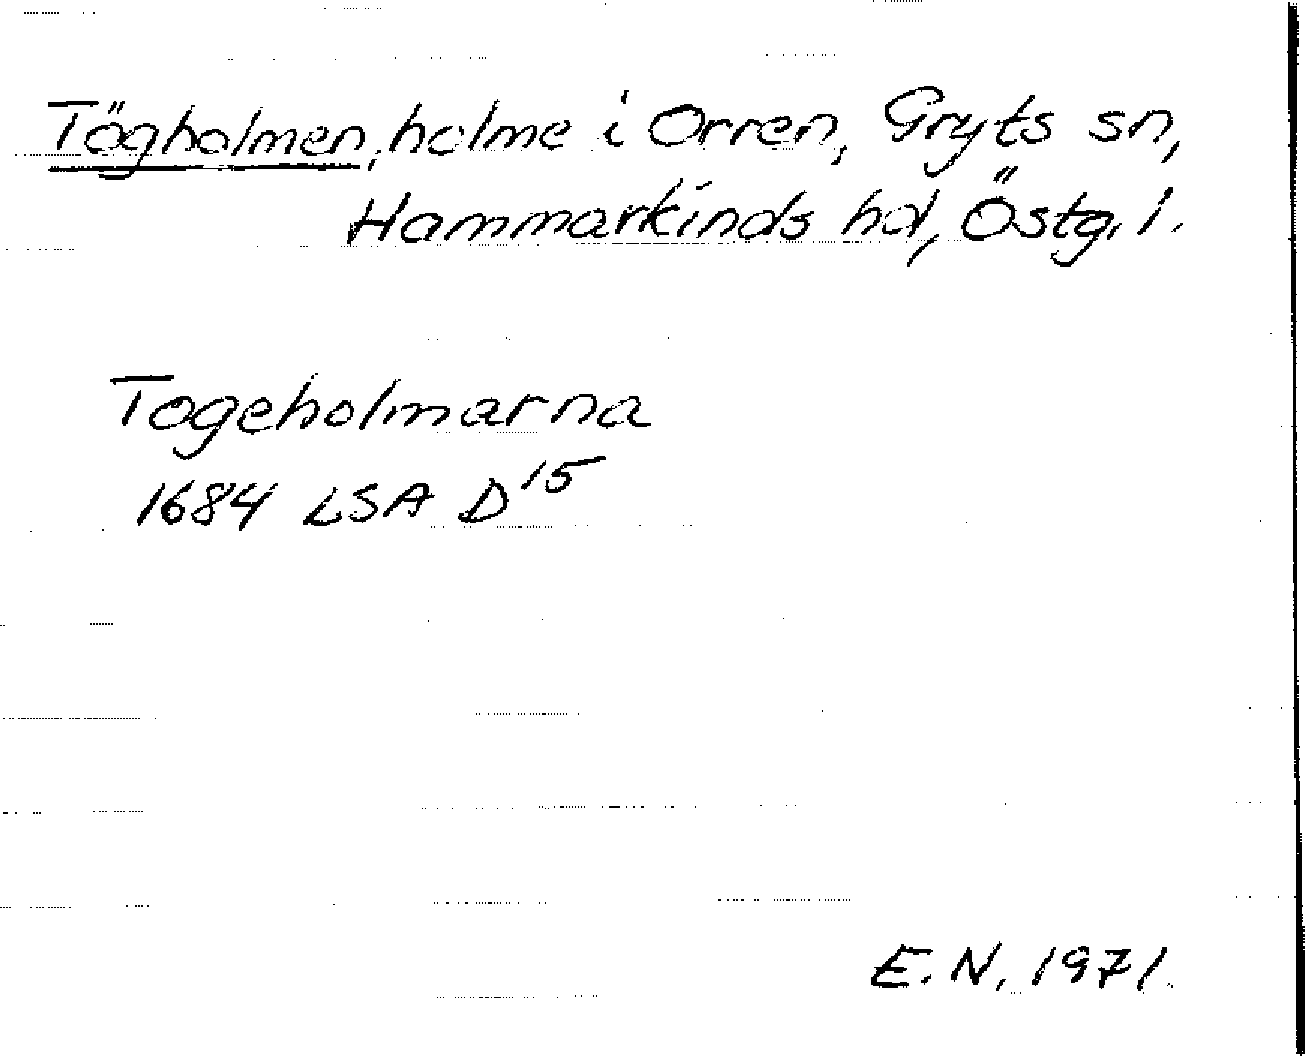 Tögholmen, holme i Orren, Gryts sn,
Hammarkinds hd, Östg. l.
Togeholmarna
1684 LSA D15
E. N. 1971.